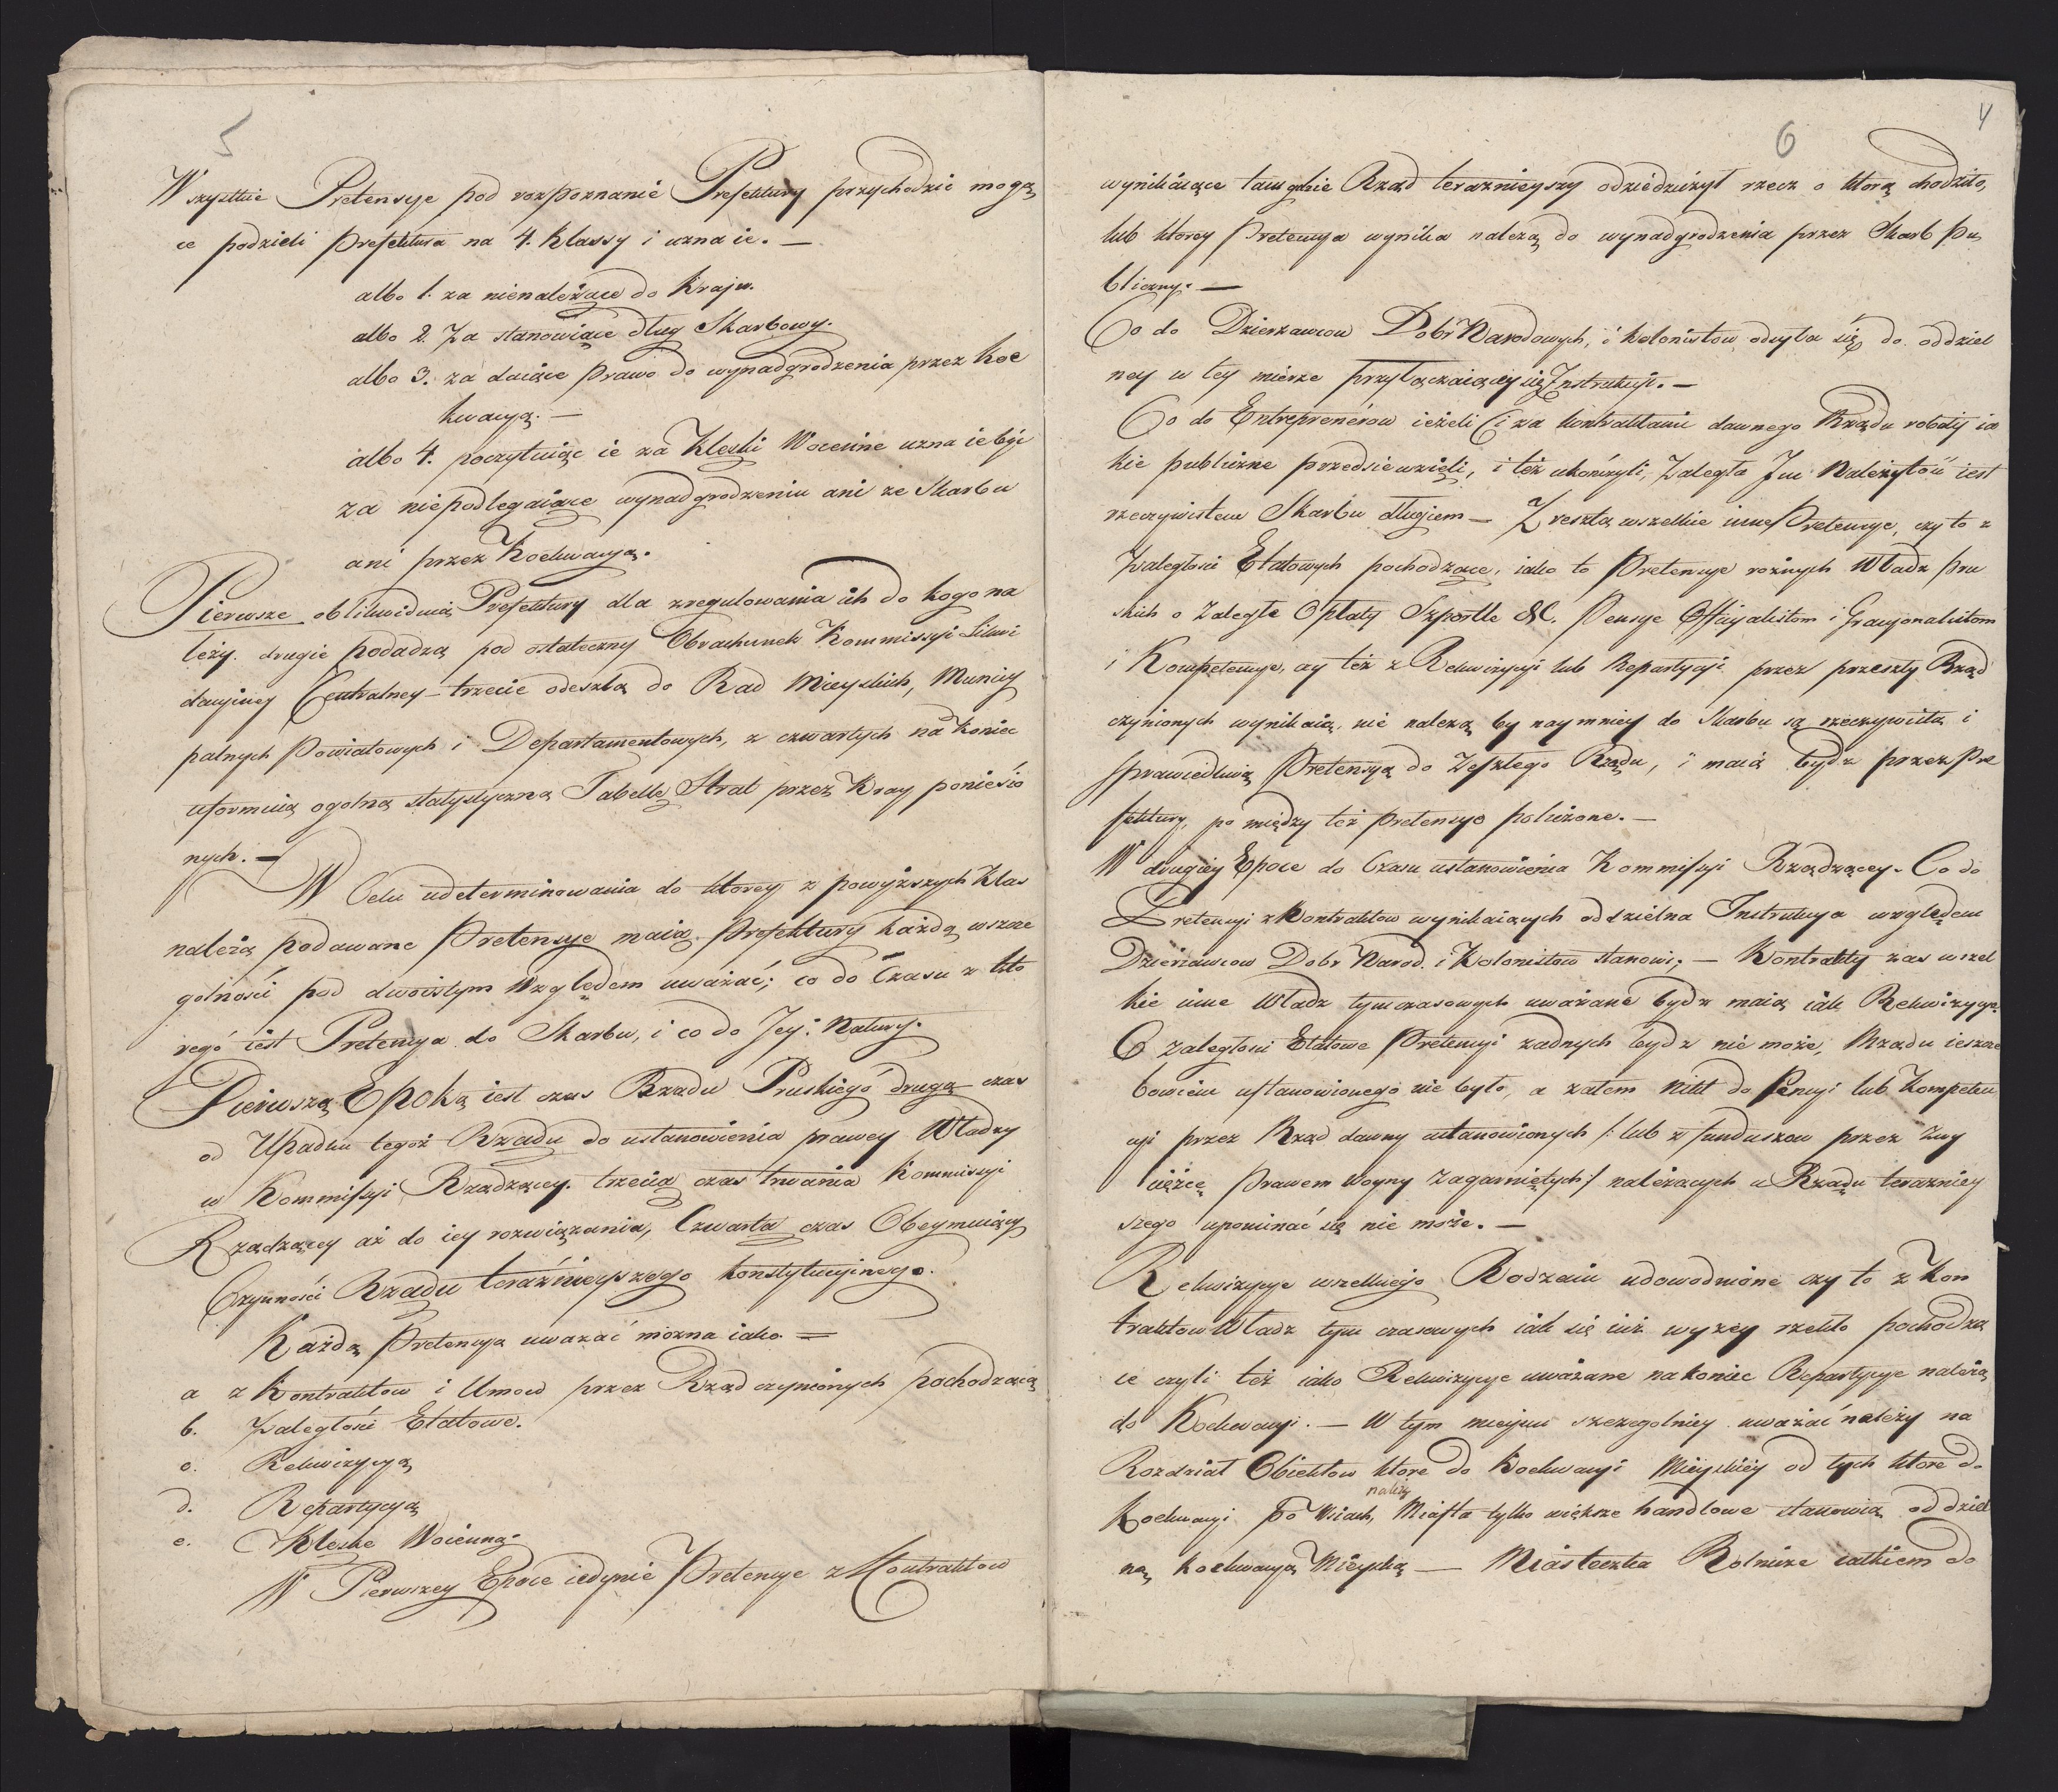 5
Wszystkie Pretensye pod rozpoznanie Prefektury przychodzic mogą
ce podzieli Prefektura na 4. Klassy i uzna ie. —
albo 1. za nienależące do Kraju.
albo 2. Za stanowiące dług Skarbowy.
albo 3. za daiące Prawo do wynadgrodzenia przez Koe
kwacyą. —
albo 4. poczytuiąc ie za Klęski Woienne uzna ie być
za niepodlegaiące wynadgrodzeniu ani ze Skarbu
ani przez Koekwacyą.
Pierwsze oblikwiduią Prefektury dla zregulowania ich do kogo na
leży. drugie podadzą pod ostateczny Obrachunek Kommissyi Likwi
dacyiney Centralney — trzecie odeszlą do Rad Mieyskich, Municy
palnych Powiatowych i Departamentowych, z czwartych na koniec
uformuią ogolną statystyczną Tabellę Strat przez Kray ponieśio
nych. —
W Celu udeterminowania do ktorey z powyższych Klas
należą podawane Pretensye maią Prefektury każdą wszcze
golności pod dwoistym Względem uważać; co do Czasu z kto
rego iest Pretensya do Skarbu, i co do Jey: Natury.
Pierwszą Epoką iest czas Rządu Pruskiego drugą czas
od Upadku tegoż Rządu do ustanowienia prawey Władzy
w Kommissyi Rządzącey. trzecią czas trwania Kommissyi
Rządzącey aż do iey rozwiązania, Czwarta czas Obeymuiący
Czynności Rządu teraźnieyszego konstytucyinego.
Każdą Pretensya uważać można iako =
a z Kontraktow i Umow przez Rząd czynionych pochodzącą
b. Zaległości Etatowe.
c. Rekwizycyą
d. Repartycyą
e. Klęskę Woienną.
W Pierwszey Epoce iedynie Pretensye z Kontraktow
6
4
wynikaiące tam gdzie Rząd teraznieyszy odziedziczył rzecz o ktorą chodziło,
lub ktorey Pretensya wynika należą do wynadgrodzenia przez Skarb Pu
bliczny. —
Co do Dzierzawcow Dobr Narodowych, i kolonistow, odsyła się do oddziel
ney w tey mierze przyłączaiącey się Instrukcyi. —
Co do Entreprenerow ieżeli Ci za kontraktami dawnego Rządu roboty ia
kie publiczne przedsiewzięli, i też ukończyli, Zaległa Im Należytość iest
rzeczywistem Skarbu długiem — Z resztą wszelkie inne Pretensye, czy to z
Zaległości Etatowych pochodzące, iako to Pretensye rożnych Władz Pru
skich o Zaległe Opłaty Szportle &C. Pensye Officyalistom i Gracyonalistom
i Kompetencye, czy też z Rekwizycyi lub Repartycyi przez przeszły Rząd
czynionych wynikaią, nie należą by naymniey do Skarbu są rzeczywistą i
sprawiedliwą Pretensyą do Zeszłego Rządu, i maią bydz przez Pre
fektury, po między też Pretensye policzone. —
W drugiey Epoce do Czasu ustanowienia Kommissyi Rządzącey. Co do
Pretensyi z Kontraktow wynikaiących oddzielna Instrukcya względem
Dzierzawcow Dobr Narod. i Kolonistow stanowi; — Kontrakty zas wszel
kie inne Władz tymczasowych uważane bydz maią iak Rekwizycye.
O Zaległości Etatowe Pretensyi żadnych bydz nie może, Rządu ieszcze
bowiem ustanowionego nie było, a zatem Nikt do Pensyi lub Kompeten
cyi przez Rząd dawny ustanowionych /: lub z funduszow przez Zwy
cięzcę Prawem Woyny Zagarniętych :/ należących u Rządu teraźniey
szego upominać się nie może. —
Rekwizycye wszelkiego Rodzaiu udowodnione czy to z Kon
traktow Władz tym czasowych iak się iuż wyzey rzekło pochodzą
ce czyli też iako Rekwizycye uważane nakoniec Repartycye należą
do Koekwacyi. — W tym mieyscu szczegolniey uważać należy na
Rozdział Obiektow ktore do Koekwacyi Mieyskiey od tych ktore do
należy
Koekwacyi po Wsiach, Miasta tylko większe handlowe stanowią oddziel
ną koekwacyą Mieyską — Miasteczka Rolnicze całkiem do